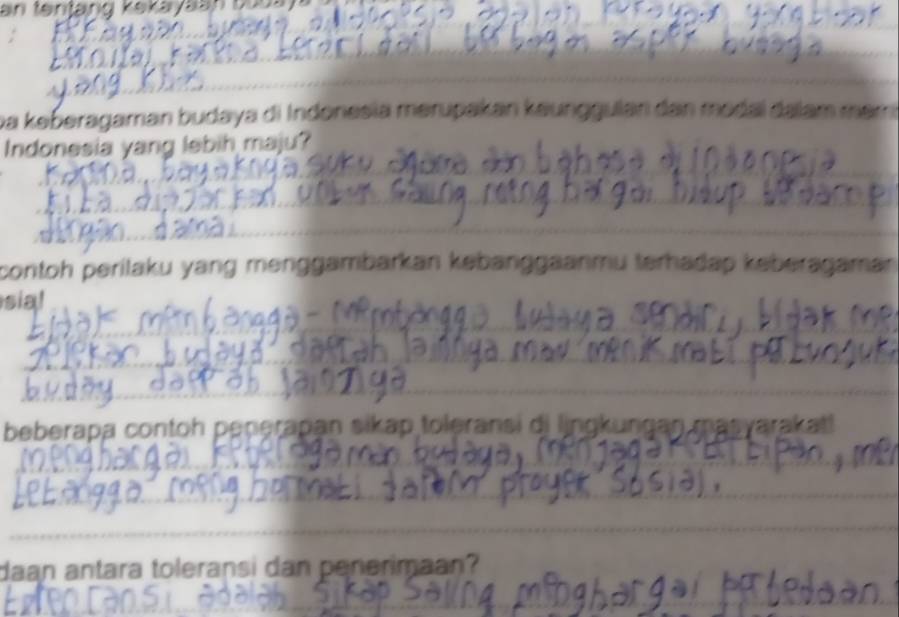 an tentang kekayaan buday
Kekayaan budaya indonesia adalah kekayaan yang tidak
ternilai karena terdiri dari berbagai aspek budaya
yang khas
pa keberagaman budaya di Indonesia merupakan keunggulan dan modal dalam mem
Indonesia yang lebih maju?
Karena bayaknya suku agama dan bahasa di indonesia
kita diajarkan untuk saling
dingan damai
contoh perilaku yang menggambarkan kebanggaanmu terhadap keberagaman
sia!
tidak membangga-membangga budaya sendiri, tidak me
jelekan budaya daerah lainnya mau menikmati pertunjuk
buday daerah lainnya
beberapa contoh penerapan sikap toleransi di lingkungan masyarakat!
menghargai keberagaman budaya, menjaga ketertipan, men
tetangga menghormati dalam proyek sosial.
daan antara toleransi dan penerimaan?
adalah sikap saling menghargai perbedaan